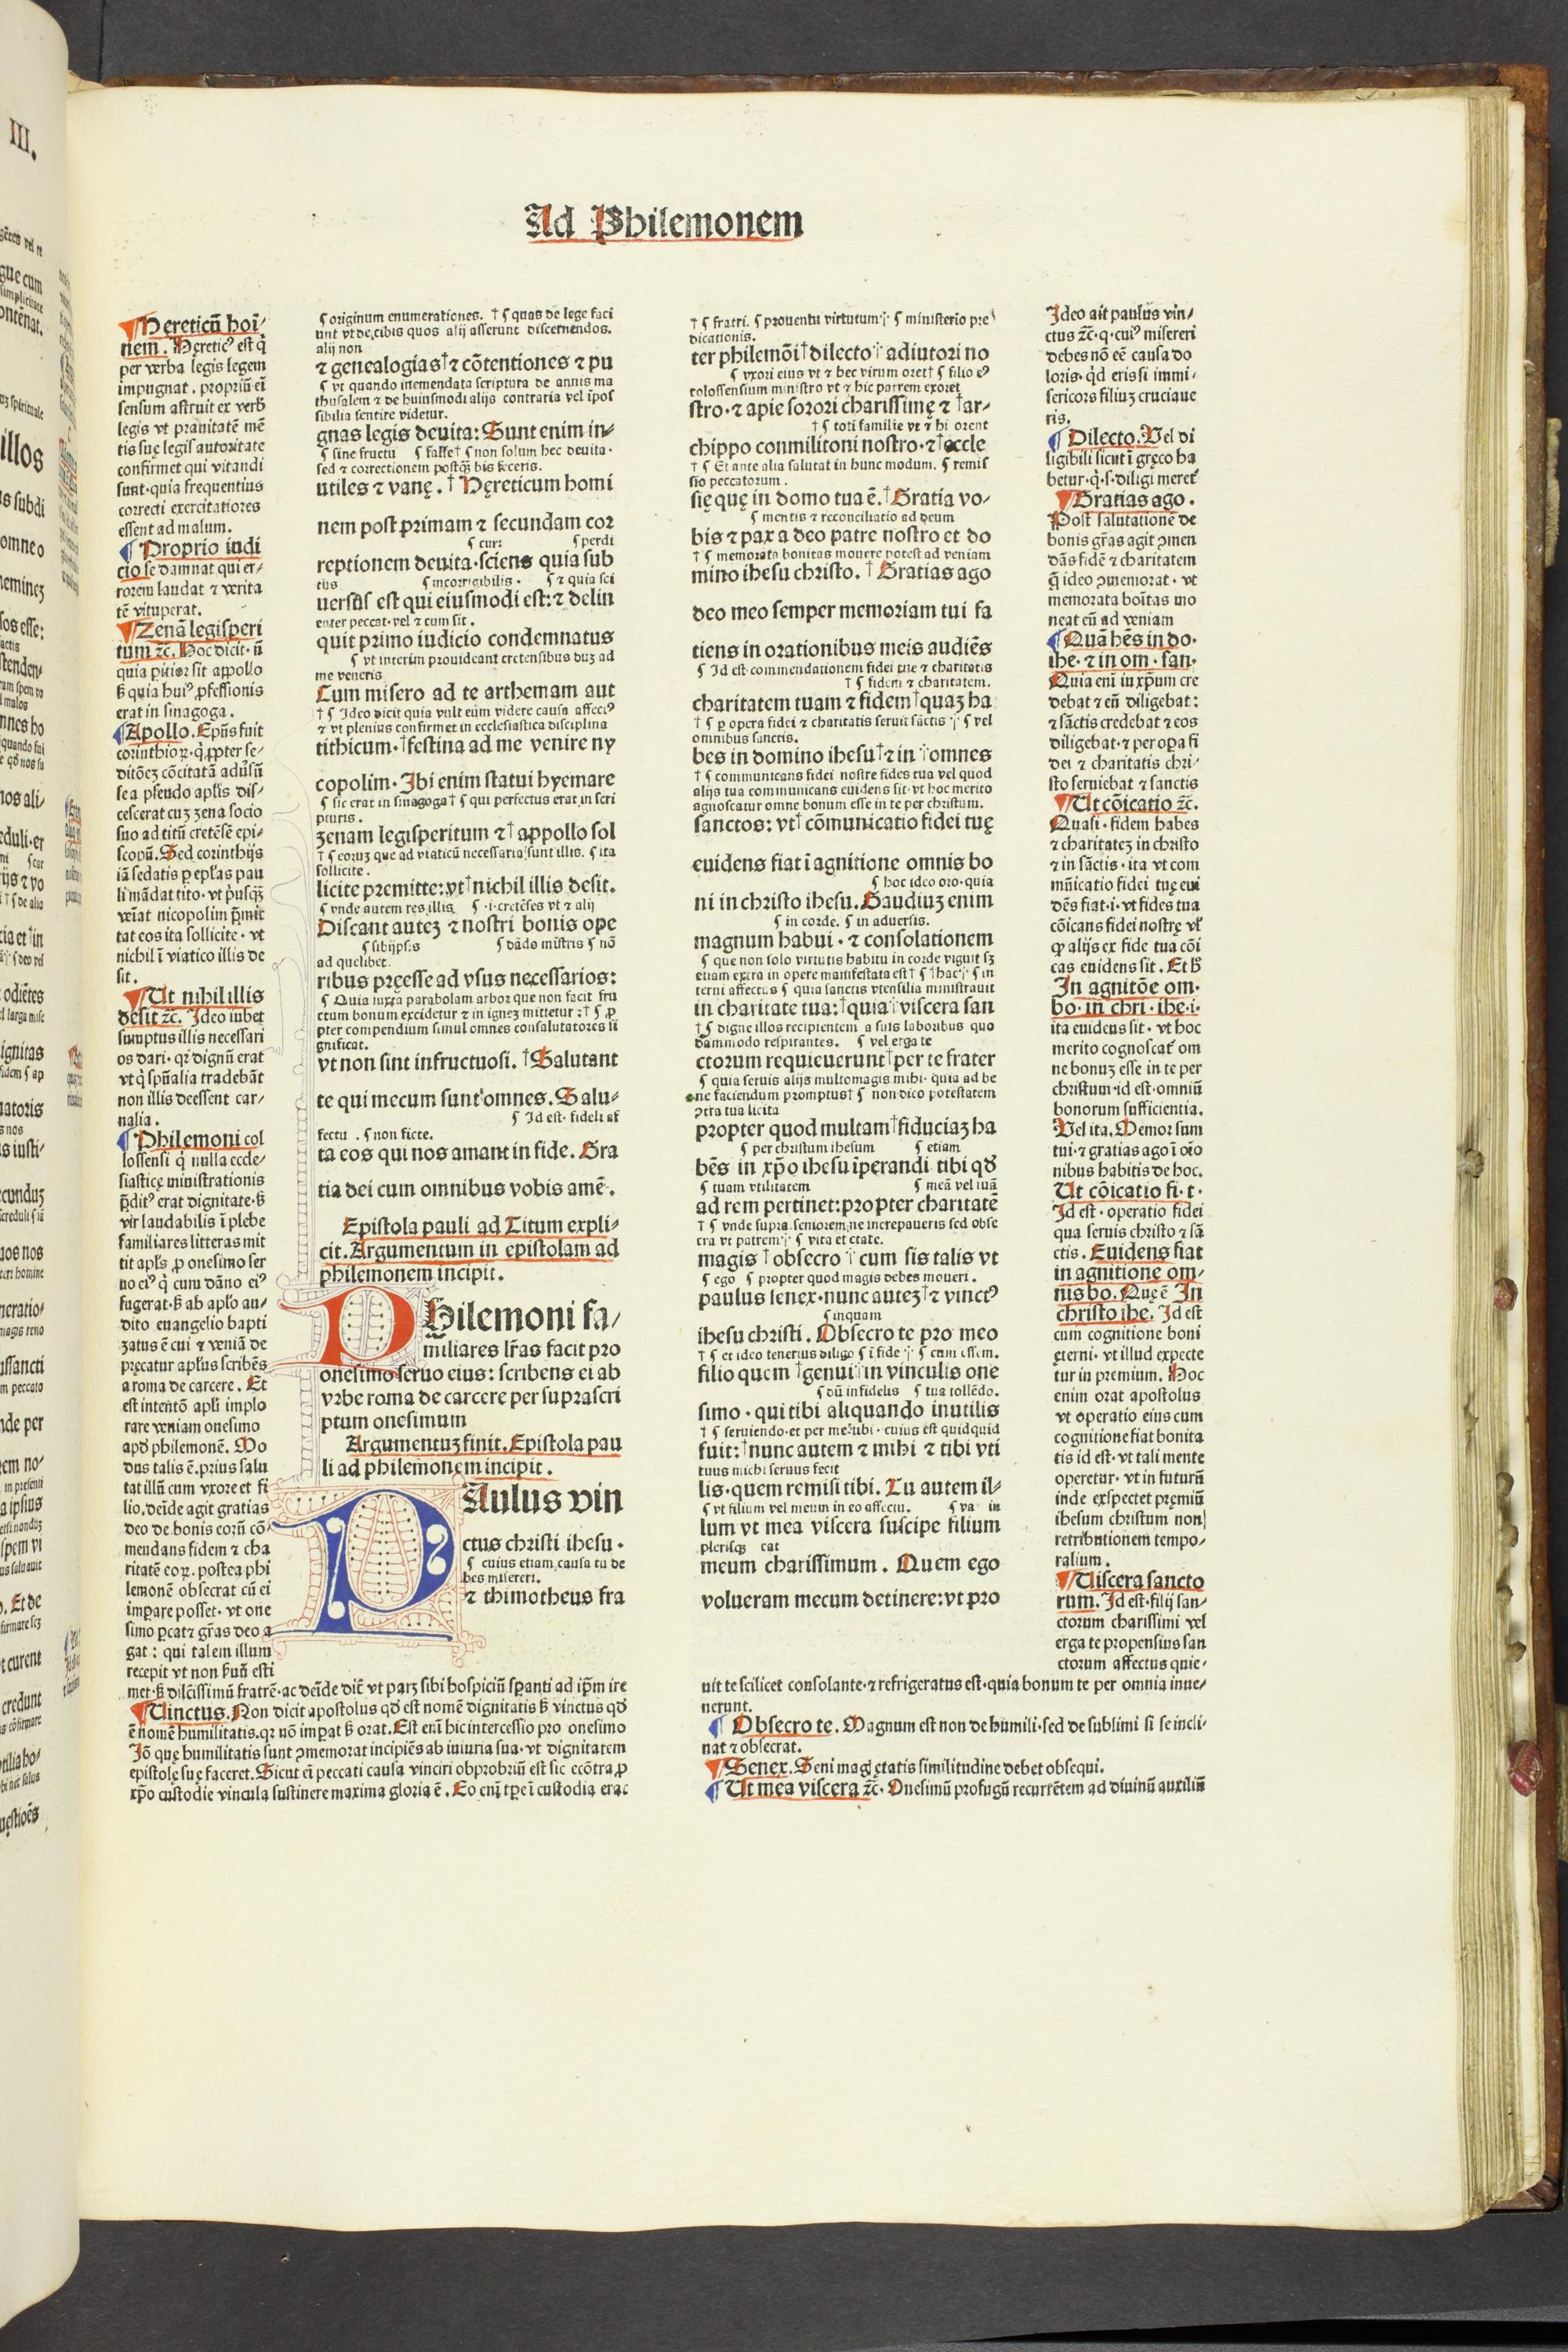 Ad Philemonem
Hereticū hoī⸗
nem. Hęreticꝰ est q̄
per verba legis legem
impugnat. propriū eī
sensum astruit ex verb̄
legis vt prauitatē mē
tis suę legis autoritate
confirmet qui vitandi
sunt·quia frequentius
correcti exercitatiores
essent ad malum.
Proprio iudi
cio se damnat qui er⸗
rorem laudat ⁊ verita
tē vituperat.
Zenā legisperi
tum ⁊c̄. Hoc dicit· ñ
quia prior sit appollo
sꝫ quia huiꝰ ꝓfessionis
erat in sinagoga.
Apollo. Epūs fuit
corinthioꝝ·
ditōeꝫ cōcitatā
se a pseudo apłis dis⸗
cescerat cuꝫ zena socio
suo ad titū cretēsē epi⸗
scopū. Sed corinthijs
iā sedatis ꝑ epłas pau
li mādat tito·
vēiat nicopolim
tat eos ita sollicite· vt
nichil ī viatico illis de
sit.
Ut nihil illis
desit ⁊c̄. Ideo iubet
sumptus illis necessari
os dari· qꝛ dignū erat
vt q̇ spūalia tradebāt
non illis deessent car⸗
nalia.
Philemoni col
lossensi q̇ nulla eccle⸗
siasticę ministrationis
p̄ditꝰ erat dignitate·sꝫ
vir laudabilis ī plebe
familiares litteras mit
tit apłs ꝓ onesimo ser
uo eiꝰ q̇ cum dāno eiꝰ
fugerat·sꝫ ab apło au⸗
dito euangelio bapti
zatus ē cui ⁊ veniā de
pręcatur apłus scribēs
a roma de carcere. Et
est intentō apłi implo
rare veniam onesimo
apd̄ philemonē. Mo
dus talis ē.prius salu
tat illū cum vxore et fi
lio.deīde agit gratias
deo de bonis eorū cō⸗
mendans fidem ⁊ cha
ritatē eoꝝ. postea phi
lemonē obsecrat cū ei
imperare posset· vt one
simo ꝑcat⁊ grās deo a
gat : qui talem illum
recepit vt non suū esti
met·sꝫ dilcissimū fratrē·ac deīde dic̄ vt parꝫ sibi hospiciū sperāti ad ip̄m ire
Uinctus. Non dicit apostolus qd̄ est nomē dignitatis sꝫ vinctus qd̄
ē nomē humilitatis.qꝛ nō imꝑat sꝫ orat. Est enī hic intercessio pro onesimo
Iō quę humilitatis sunt ꝯmemorat incipiēs ab iniuria sua· vt dignitatem
epistolę suę faceret. Sicut eī peccati causa vinciri obprobriū est sic ecōtra ꝓ
xp̄o custodie vincula sustinere maxima gloria ē. Eo enī tꝑe ī custodia erat
¶ originum enumerationes. † ¶ quas de lege faci
unt vt de cibis quos alij asserunt discernendos.
alij non
⁊ genealogias†⁊ cōtentiones ⁊ pu
¶ vt quando intemendata scriptura de annis ma
thusalem ⁊ de huiusmodi alijs contraria vel īpos
sibilia sentire videtur.
gnas legis deuita: Sunt enim in⸗
¶ sine fructu ¶ false† ¶ non solum hec deuita·
sed ⁊ correctionem postq̄ꝫ bis feceris.
utiles ⁊ vanę. † Hęreticum homi
nem post primam ⁊ secundam cor
¶ cur: ¶ perdi
reptionem deuita·sciens quia sub
tijs ¶ incorrigibilis· ¶ ⁊ quia sci
uersus est qui eiusmodi est:⁊ delin
enter peccat·vel ⁊ cum sit.
quit primo iudicio condemnatus
¶ vt interim prouideant cretensibus duꝫ ad
me veneris
Cum misero ad te arthemam aut
† ¶ Ideo dicit quia vult eum videre causa affectꝰ
⁊ vt plenius confirmet in ecclesiastica disciplina
tithicum. †festina ad me venire ny
copolim. Ibi enim statui hyemare
¶ sic erat in sinagoga† ¶ qui perfectus erat in scri
pturis.
zenam legisperitum ⁊† appollo sol
† ¶ eoruꝫ que ad viaticū necessaria sunt illis. ¶ ita
sollicite.
licite premitte:vt†nichil illis desit.
¶ vnde autem res illis ¶ ·i·cretēses vt ⁊ alij
Discant auteꝫ ⁊ nostri bonis ope
¶ sibijpsis ¶ dādo mīstris ¶ nō
ad quelibet.
ribus pręesse ad vsus necessarios:
¶ Quia iuxta parabolam arbor que non facit fru
ctum bonum excidetur ⁊ in igneꝫ mittetur :† ¶ ꝓ
pter compendium simul omnes consalutatores si
gnificat.
vt non sint infructuosi. †Salutant
te qui mecum sunt omnes. Salu⸗
¶ Id est· fideli af
fectu . ¶ non ficte.
ta eos qui nos amant in fide. Gra
tia dei cum omnibus vobis amē.
Epistola pauli ad Titum expli⸗
cit. Argumentum in epistolam ad
philemonem incipit.
PHilemoni fa⸗
miliares lr̄as facit pro
onesimo seruo eius: scribens ei ab
vrbe roma de carcere per suprascri
ptum onesimum
Argumentuꝫ finit. Epistola pau
li ad philemonem incipit.
PAulus vin
ctus christi ihesu·
¶ cuius etiam causa tu de
bes misereri.
⁊ thimotheus fra
† ¶ fratri. ¶ prouentu virtutum ¶ ministerio pre
dicationis.
ter philemōi†dilecto adiutori no
¶ vxori eius vt ⁊ hec virum oret† ¶ filio eꝰ
colossensium ministro vt ⁊ hic patrem exoret
stro·⁊ apie sorori charissimę ⁊ †ar⸗
† ¶ toti familie vt ⁊ hi orent
chippo conmilitoni nostro·⁊†eccle
† ¶ Et ante alia salutat in hunc modum. ¶ remis
sio peccatorum.
się quę in domo tua ē.†Gratia vo⸗
¶ mentis ⁊ reconciliatio ad deum
bis ⁊ pax a deo patre nostro et do
† ¶ memorata bonitas mouere potest ad veniam
mino ihesu christo. † Gratias ago
deo meo semper memoriam tui fa
tiens in orationibus meis audiēs
¶ Id est·commendationem fidei tue ⁊ charitatis
† ¶ fidem ⁊ charitatem.
charitatem tuam ⁊ fidem†quaꝫ ha
† ¶ ꝑ opera fidei ⁊ charitatis seruit sāctis ¶ vel
omnibus sanctis.
bes in domino ihesu†⁊ in omnes
† ¶ communicans fidei nostre fides tua vel quod
alijs tua communicans euidens sit·vt hoc merito
agnoscatur omne bonum esse in te per christum.
sanctos: vt† cōmunicatio fidei tuę
euidens fiat ī agnitione omnis bo
¶ hoc ideo oro·quia
ni in christo ihesu. Gaudiuꝫ enim
¶ in corde. ¶ in aduersis.
magnum habui·⁊ consolationem
¶ que non solo virtutis habitu in corde viguit sꝫ
etiam extra in opere manifestata est† ¶ hac ¶ in
terni affectus ¶ quia sanctis vtensilia ministrauit
in charitate tua:†quia viscera san
† ¶ digne illos recipientem a suis laboribus quo
dammodo respirantes. ¶ vel erga te
ctorum requieuerunt†per te frater
¶ quia seruis alijs multomagis mihi· quia ad be
ne faciendum promptus† ¶ non dico potestatem
ꝯtra tua licita
propter quod multam†fiduciaꝫ ha
¶ per christum ihesum ¶ etiam
bēs in xp̄o ihesu īperandi tibi qd̄
¶ tuam vtilitatem ¶ meā vel tuā
ad rem pertinet:propter charitatē
† ¶ vnde supra·seniorem ne increpaueris sed obse
cra vt patrem ¶ vita et etate.
magis †obsecro cum sis talis vt
¶ ego ¶ propter quod magis debes moueri.
paulus senex·nunc auteꝫ†⁊ vinctꝰ
¶ inquam
ihesu christi. Obsecro te pro meo
† ¶ et ideo tenerius diligo ¶ ī fide ¶ cum essem.
filio quem †genui in vinculis one
¶ dū infidelis ¶ tua tollēdo.
simo·qui tibi aliquando inutilis
† ¶ seruiendo·et per me tibi·cuius est quidquid
fuit:†nunc autem ⁊ mihi ⁊ tibi vti
tuus michi seruus fecit
lis·quem remisi tibi. Tu autem il⸗
¶ vt filium vel meum in eo affectu.
lum vt mea viscera suscipe filium
plerisqꝫ cat
meum charissimum. Quem ego
volueram mecum detinere:vt pro
Ideo ait paulus vin⸗
ctus ⁊c̄·q·cuiꝰ misereri
debes nō eē causa do
loris·qd̄ eris si immi⸗
sericors filiuꝫ cruciaue
ris.
Dilecto. Vel di
ligibili sicut ī gręco ha
betur·q̇·s·diligi meret᷑
Gratias ago.
Post salutationē de
bonis grās agit ꝯmen
dās fidē ⁊ charitatem
q̄ ideo ꝯmemorat·vt
memorata boītas mo
neat eū ad veniam
Quā hēs in do·
ihe·⁊ in om·san·
Quia enī in xp̄um cre
debat ⁊ eū diligebat:
⁊ sāctis credebat ⁊ eos
diligebat·⁊ per oꝑa fi
dei ⁊ charitatis chri⸗
sto seruiebat ⁊ sanctis
Ut cōicatio ⁊c̄.
Quasi·fidem habes
⁊ charitateꝫ in christo
⁊ in sāctis·ita vt com
mūicatio fidei tuę eui
dēs fiat·i·vt fides tua
cōicans fidei nostrę vł
ꝙ alijs ex fide tua cōi
cas euidens sit. Et h̄
In agnitōe om·
bo·in chri·ihe·i·
ita euidens sit·vt hoc
merito cognoscat᷑ om
ne bonuꝫ esse in te per
christum·id est·omniū
bonorum sufficientia.
Vel ita. Memor sum
tui·⁊ gratias ago ī orō
nibus habitis de hoc.
Ut cōicatio fi·t·
Id est·operatio fidei
qua seruis christo ⁊ sā
ctis. Euidens fiat
in agnitione om⸗
nis bo. Quę ē In
christo ihe. Id est
cum cognitione boni
ęterni·vt illud expecte
tur in premium. Hoc
enim orat apostolus
vt operatio eius cum
cognitione fiat bonita
tis id est·vt tali mente
operetur·vt in futurū
inde exspectet pręmiū
ihesum christum non
retributionem tempo⸗
ralium.
Uiscera sancto
rum. Id est·filij san⸗
ctorum charissimi vel
erga te propensius san
ctorum affectus quie⸗
uit te scilicet consolante·⁊ refrigeratus est·quia bonum te per omnia inue⸗
nerunt.
Obsecro te. Magnum est non de humili·sed de sublimi si se incli⸗
nat ⁊ obsecrat.
Senex. Seni magꝭ ętatis similitudine debet obsequi.
Ut mea viscera ⁊c̄. Onesimū profugū recurrētem ad diuinū auxiliū